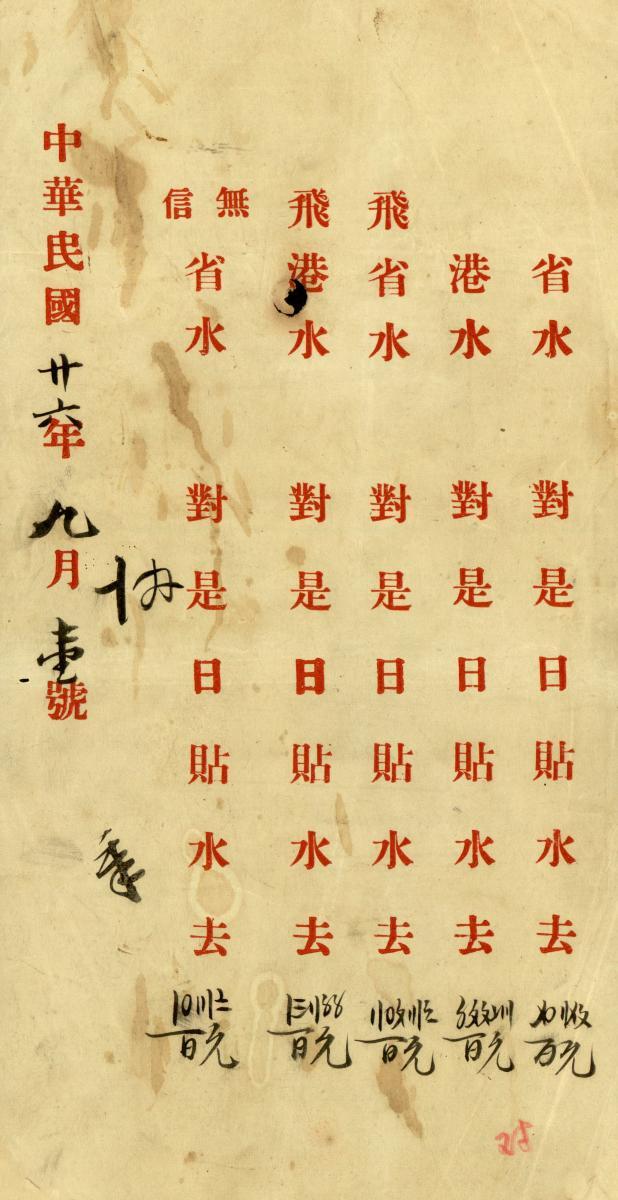 省水 對是日貼水去
百元
港水 對是日貼水去
百元
飛省水 對是日貼水去
百元
飛港水 對是日貼水去
百元
無信省水 對是日貼水去
百元
中華民國廿六年九月壹號